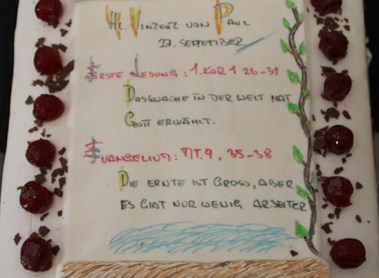 Hl. Vinzenz von Paul
27. September
Erste Lesung: 1. Kor 1 26-31
Das Schwache in der Welt hat
Gott erwählt.
Evangelium: Mt. 9, 35-38
Die Ernte ist gross, aber
es gibt nur wenig Arbeiter